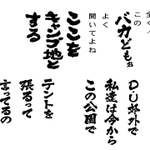 全く、
この
バカどもが
よく
聞いてよね
ここを
キャンプ地と
する
私達は今から
この公園で
テントを
張るって
言ってるの